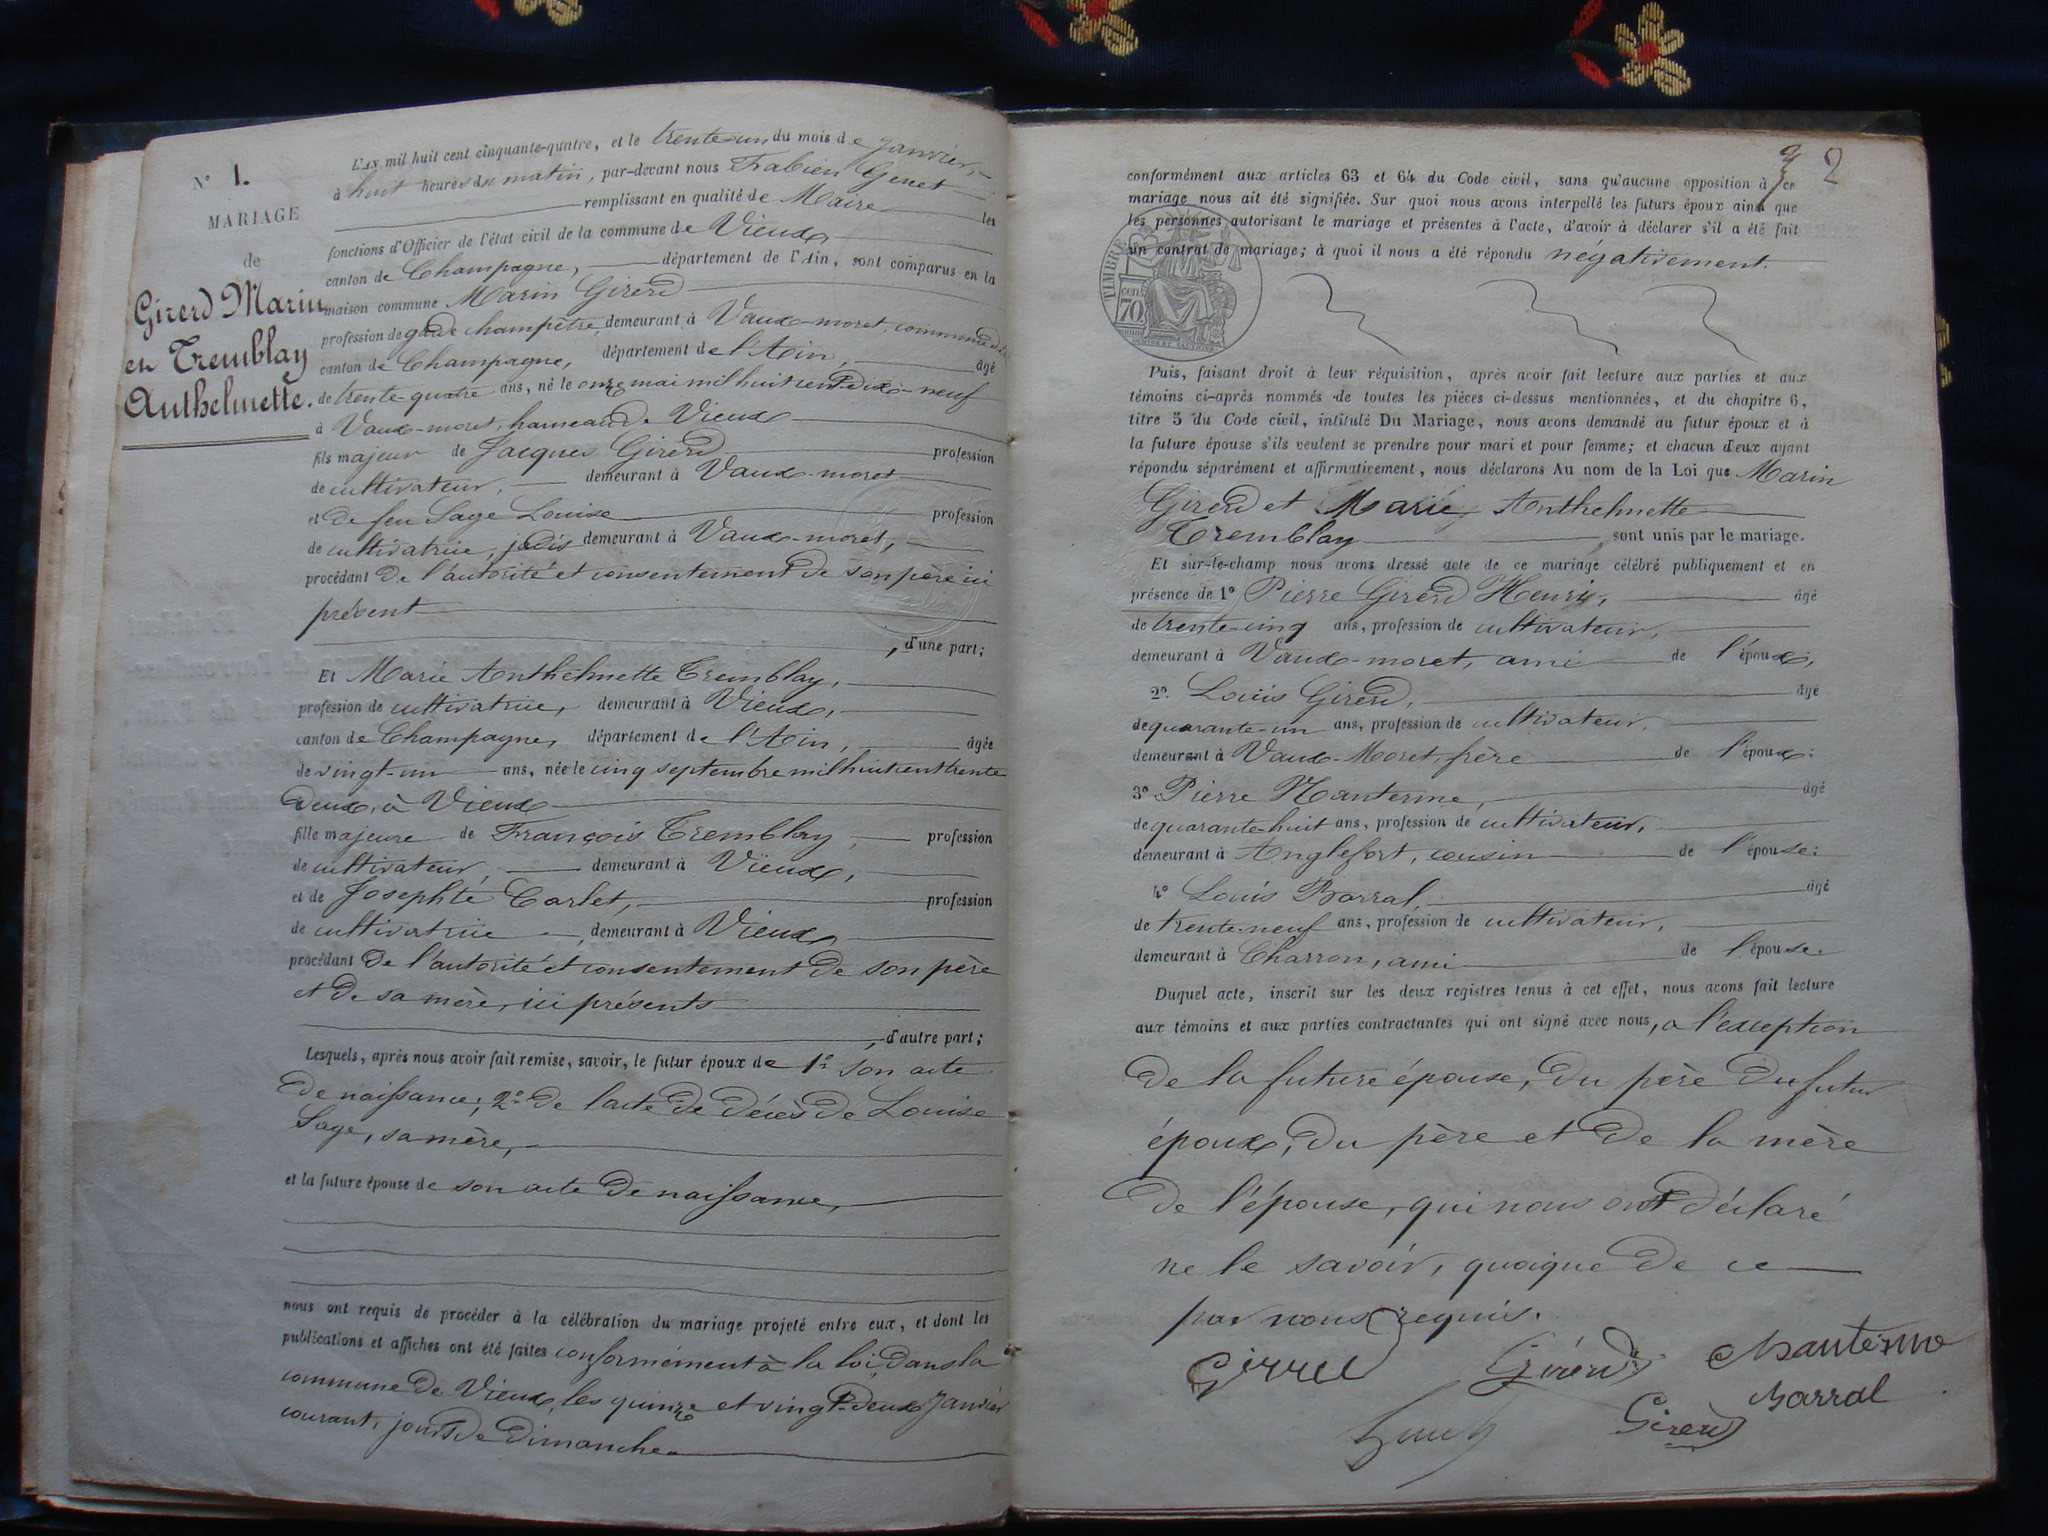 N° 1.
MARIAGE
de
Girerd Marin
et Tremblay
Anthelmette.
L'AN mil huit cent cinquante-quatre, et le trente-un du mois de Janvier,
à huit heures du matin, par-devant nous Fabien Genet
remplissant en qualité de Maire les
fonctions d'Officier de l'état civil de la commune de Vieux,
canton de Champagne, département de l'Ain, sont comparus en la
maison commune Marin Girerd
profession de garde champêtre, demeurant à Vaux-moret, commune de
canton de Champagne, département de l'Ain, âgé
de trente-quatre ans, né le onze mai mil huit cent dix-neuf
à Vaux-moret, hameau de Vieux
fils majeur de Jacques Girerd profession
de cultivateur, demeurant à Vaux-moret
et de feu Sage Louise profession
de cultivatrice, jadis demeurant à Vaux-moret,
procédant de l'autorité et consentement de son père ici
présent
, d'une part;
Et Marie Anthelmette Tremblay,
profession de cultivatrice, demeurant à Vieux,
canton de Champagne, département de l'Ain, âgée
de vingt-un ans, née le cinq septembre mil huit cent trente
deux, à Vieux
fille majeure de François Tremblay, profession
de cultivateur, demeurant à Vieux,
et de Josephte Carlet, profession
de cultivatrice demeurant à Vieux,
procédant de l'autorité et consentement de son père
et de sa mère, ici présents
, d'autre part;
Lesquels, après nous avoir fait remise, savoir, le futur époux de 1° son acte
de naissance; 2° de l'acte de décès de Louise
Sage, sa mère,
et la future épouse de son acte de naissance,
nous ont requis de procéder à la célébration du mariage projeté entre eux, et dont les
publications et affiches ont été faites conformément à la loi, dans la
commune de Vieux, les quinze et vingt-deux Janvier
courant, jours de Dimanche.
2
conformément aux articles 63 et 64 du Code civil, sans qu'aucune opposition à ce
mariage nous ait été signifiée. Sur quoi nous avons interpellé les futurs époux ainsi que
les personnes autorisant le mariage et présentes à l'acte, d'avoir à déclarer s'il a été fait
un contrat de mariage; à quoi il nous a été répondu négativement.
TIMBRE
cen
70
Puis, faisant droit à leur réquisition, après avoir fait lecture aux parties et aux
témoins ci-après nommés de toutes les pièces ci-dessus mentionnées, et du chapitre 6,
titre 5 du Code civil, intitulé Du Mariage, nous avons demandé au futur époux et à
la future épouse s'ils veulent se prendre pour mari et pour femme; et chacun d'eux ayant
répondu séparément et affirmativement, nous déclarons Au nom de la Loi que Marin
Girerd et Marie Anthelmette
Tremblay sont unis par le mariage.
Et sur-le-champ nous avons dressé acte de ce mariage célébré publiquement et en
présence de 1° Pierre Girerd Henri, âgé
de trente-cinq ans, profession de cultivateur,
demeurant à Vaux-moret, ami de l'époux,
2° Louis Girerd, âgé
de quarante-un ans, profession de cultivateur,
demeurant à Vaux-Moret, frère de l'époux:
3° Pierre Manterme, âgé
de quarante-huit ans, profession de cultivateur,
demeurant à Anglefort, cousin de l'épouse:
4° Louis Barral, âgé
de trente-neuf ans, profession de cultivateur,
demeurant à Charron, ami de l'épouse.
Duquel acte, inscrit sur les deux registres tenus à cet effet, nous avons fait lecture
aux témoins et aux parties contractantes qui ont signé avec nous, a l'exception
de la future épouse, du père du futur
époux, du père et de la mère
de l'épouse, qui nous ont déclaré
ne le savoir, quoique de ce
par nous requis.
Girerd Girerd Manterme
Barral
Girerd